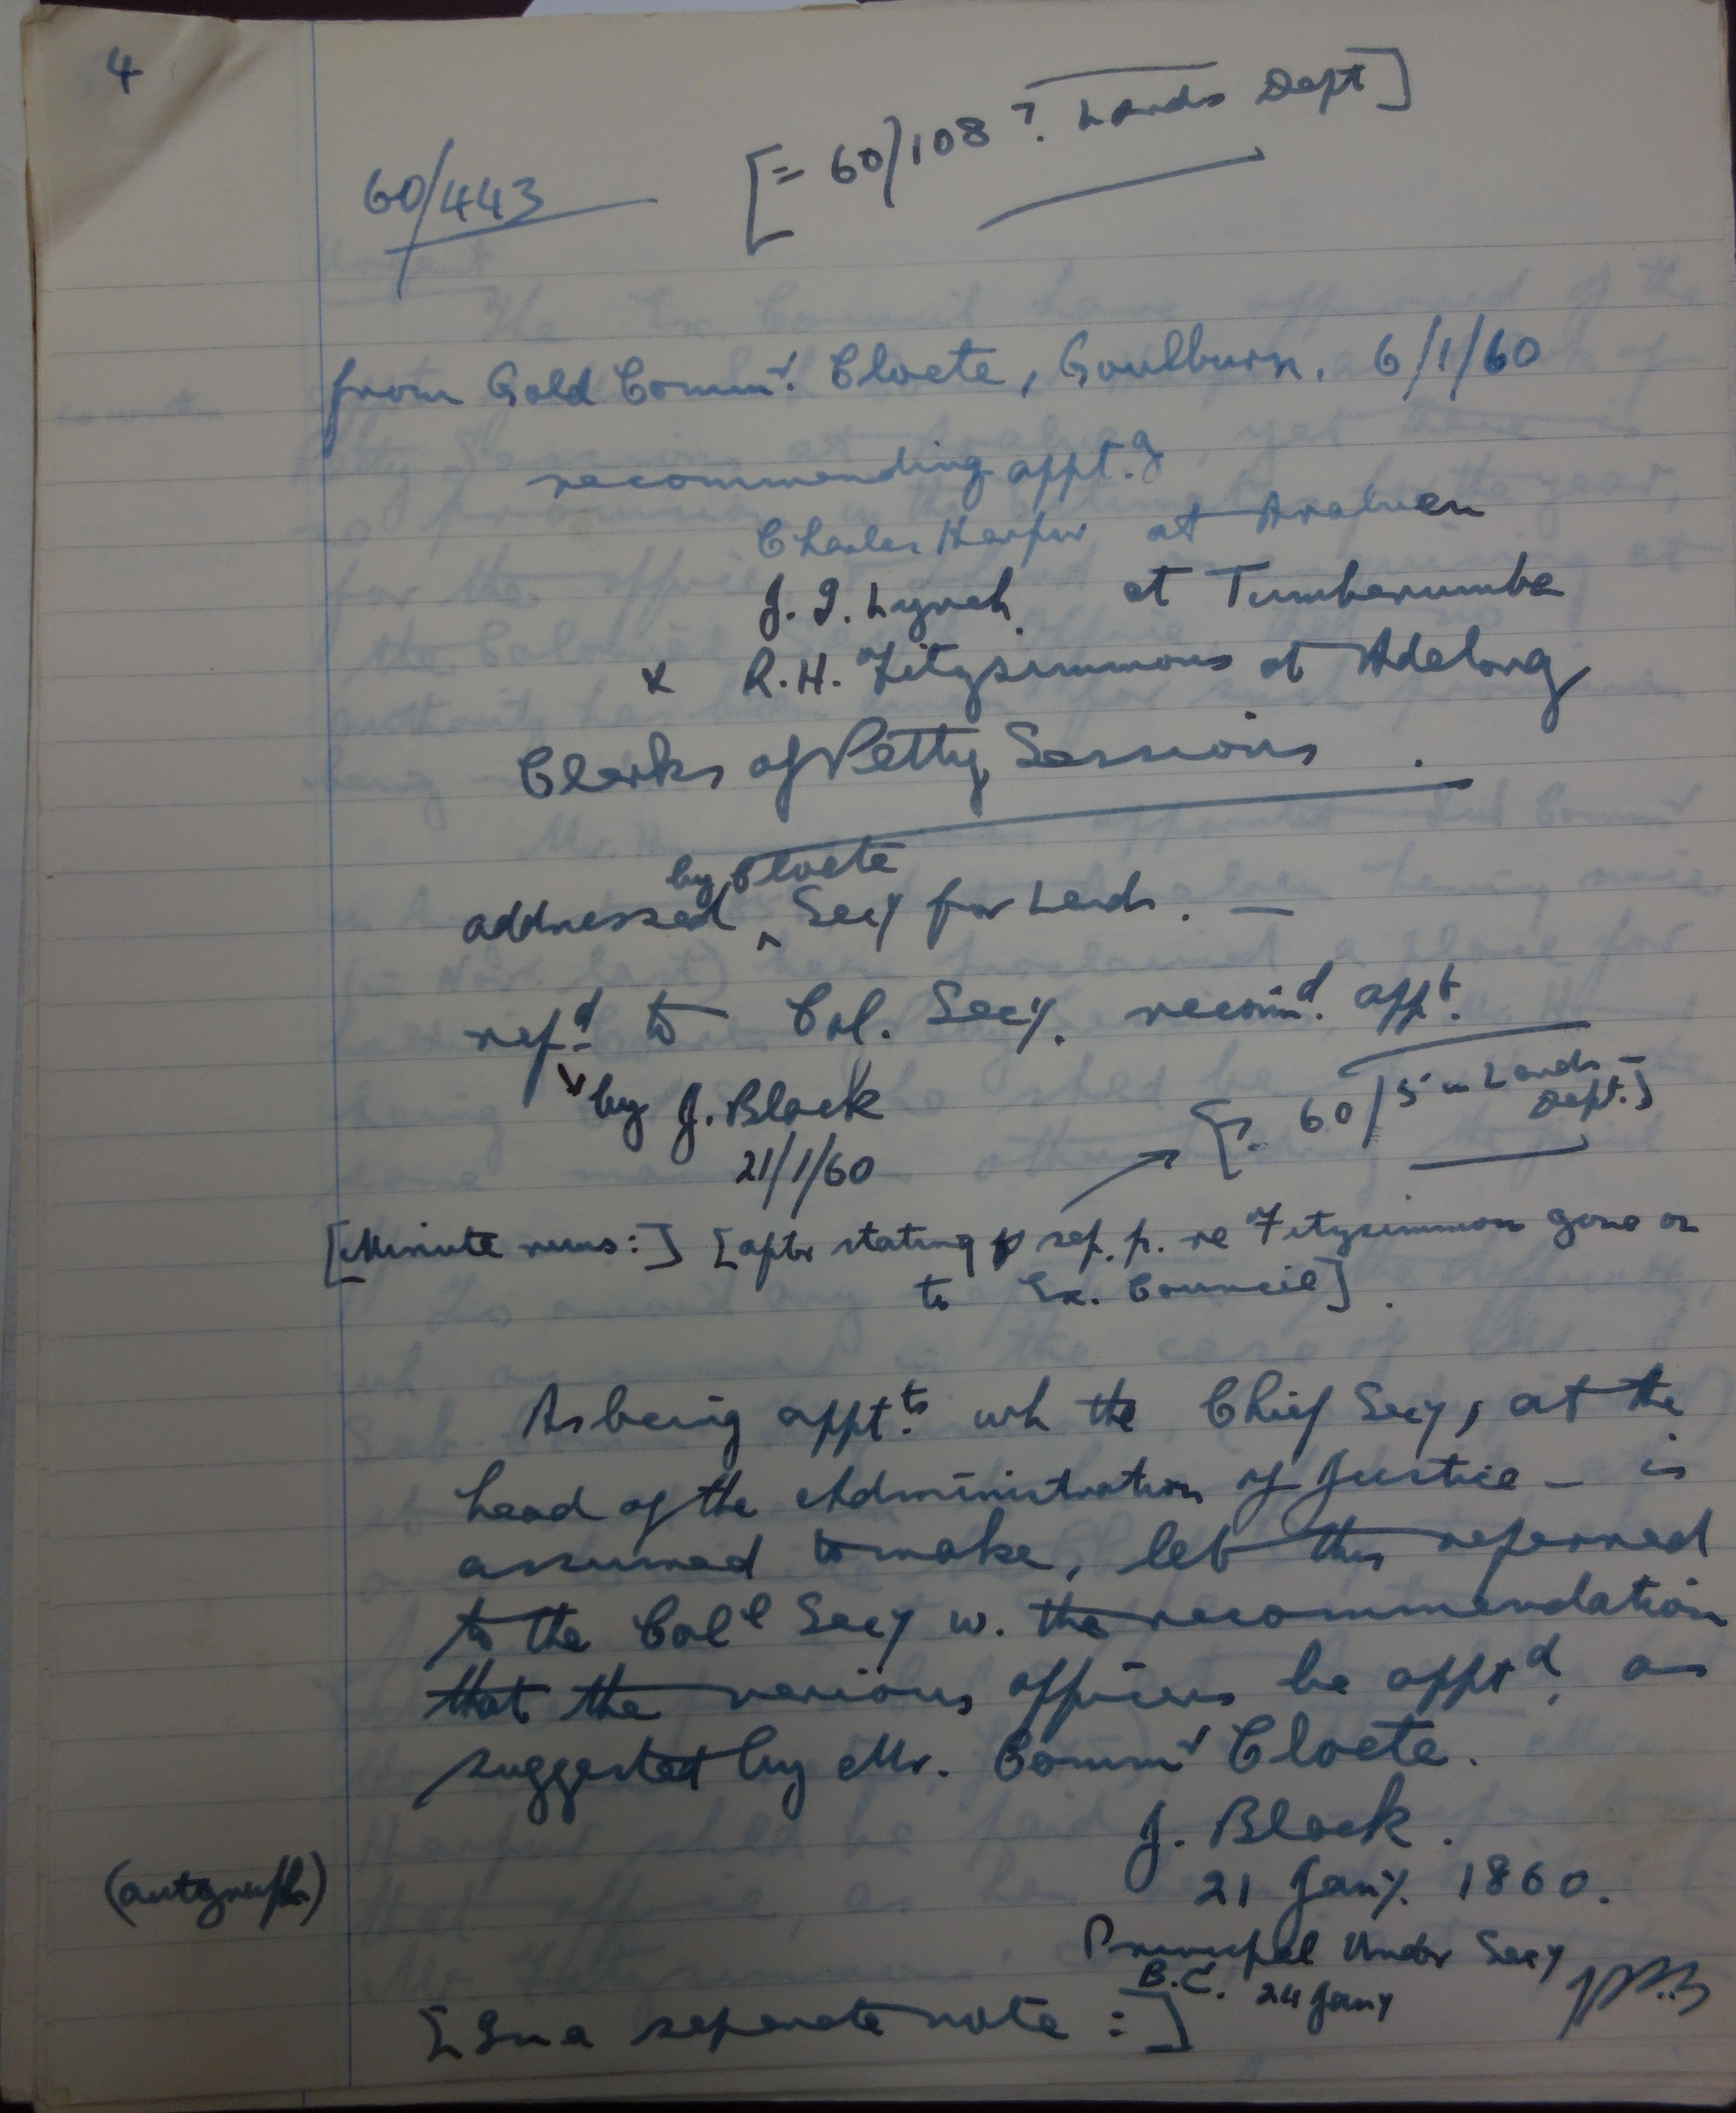 4
60/443 [= 60/108 ?. Lands Dept]
from Gold Commr. Cloete, Goulburn, 6/1/60
recommending appt. of
Charles Harpur at Araluen
J. G. Lynch at Tumbarumba
x R. H. Fitzsimmons at Adelong
Clerks of Petty Sessions.
by Cloete
addressed ^ Secy for Lands. —
refd to Col. Secy. recomd. appt.
by J. Black
21/1/60
[?. 60/5 in Lands
Dept.]
[Minute runs:] [after stating sep. p. re Fitzsimmons gone on
to Ex. Council].
As being appts. wh the Chief Secy, at the
head of the Administration of Justice — is
assumed to make, let this referred
to the Coll Secy w. the recommendation
that the various officers be apptd, as
suggested by Mr. Commr Cloete.
J. Black.
(autograph)
21 Jany. 1860.
Principal Under Secy
B.C. 24 Jany
[In a separate note :]